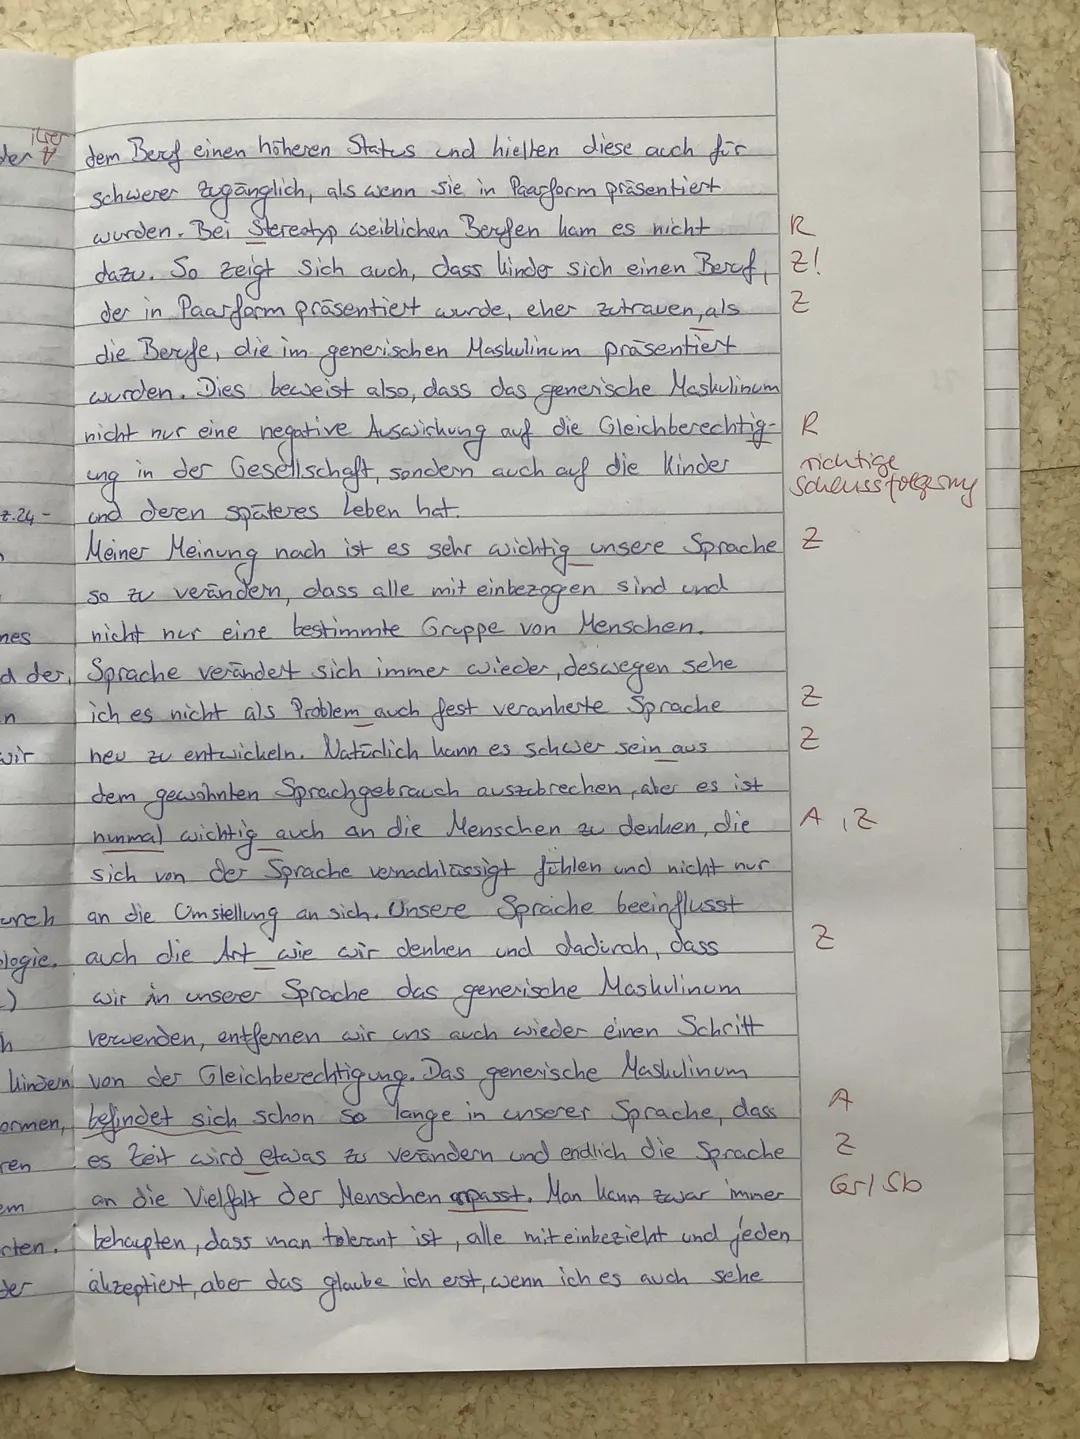 dem Beruf einen höheren Status und hielten diese auch für
schwerer zugänglich, als wenn sie in Paarform präsentiert
wurden. Bei Stereotyp weiblichen Berufen kam es nicht R
dazu. So zeigt sich auch, dass kinder sich einen Beruf, Z!
der in Paarform präsentiert wurde, eher zutrauen, als Z
die Berufe, die im generischen Maskulinum präsentiert
wurden. Dies beweist also, dass das generische Maskulinum
nicht nur eine negative Auswirkung auf die Gleichberechtig- R
ung in der Gesellschaft, sondern auch auf die Kinder richtige
z.24- und deren späteres Leben hat. Schlussfolgerung
Meiner Meinung nach ist es sehr wichtig unsere Sprache Z
so zu verändern, dass alle mit einbezogen sind und
nes nicht nur eine bestimmte Gruppe von Menschen.
d der, Sprache verändert sich immer wieder, deswegen sehe
n ich es nicht als Problem auch fest verankerte Sprache Z
wir neu zu entwickeln. Natürlich kann es schwer sein aus Z
dem gewohnten Sprachgebrauch auszubrechen, aber es ist
nunmal wichtig auch an die Menschen zu denken, die A, Z
sich von der Sprache vernachlässigt fühlen und nicht nur
urch an die Umstellung an sich. Unsere Sprache beeinflusst
ologie. auch die Art wie wir denken und dadurch, dass Z
.) wir in unserer Sprache das generische Maskulinum
h verwenden, entfernen wir uns auch wieder einen Schritt
kindern von der Gleichberechtigung. Das generische Maskulinum
ormen, befindet sich schon so lange in unserer Sprache, dass A
ren es Zeit wird etwas zu verändern und endlich die Sprache Z
em an die Vielfalt der Menschen anpasst. Man kann zwar immer Gr/Sb
cten. behaupten, dass man tolerant ist, alle miteinbezieht und jeden
der akzeptiert, aber das glaube ich erst, wenn ich es auch sehe